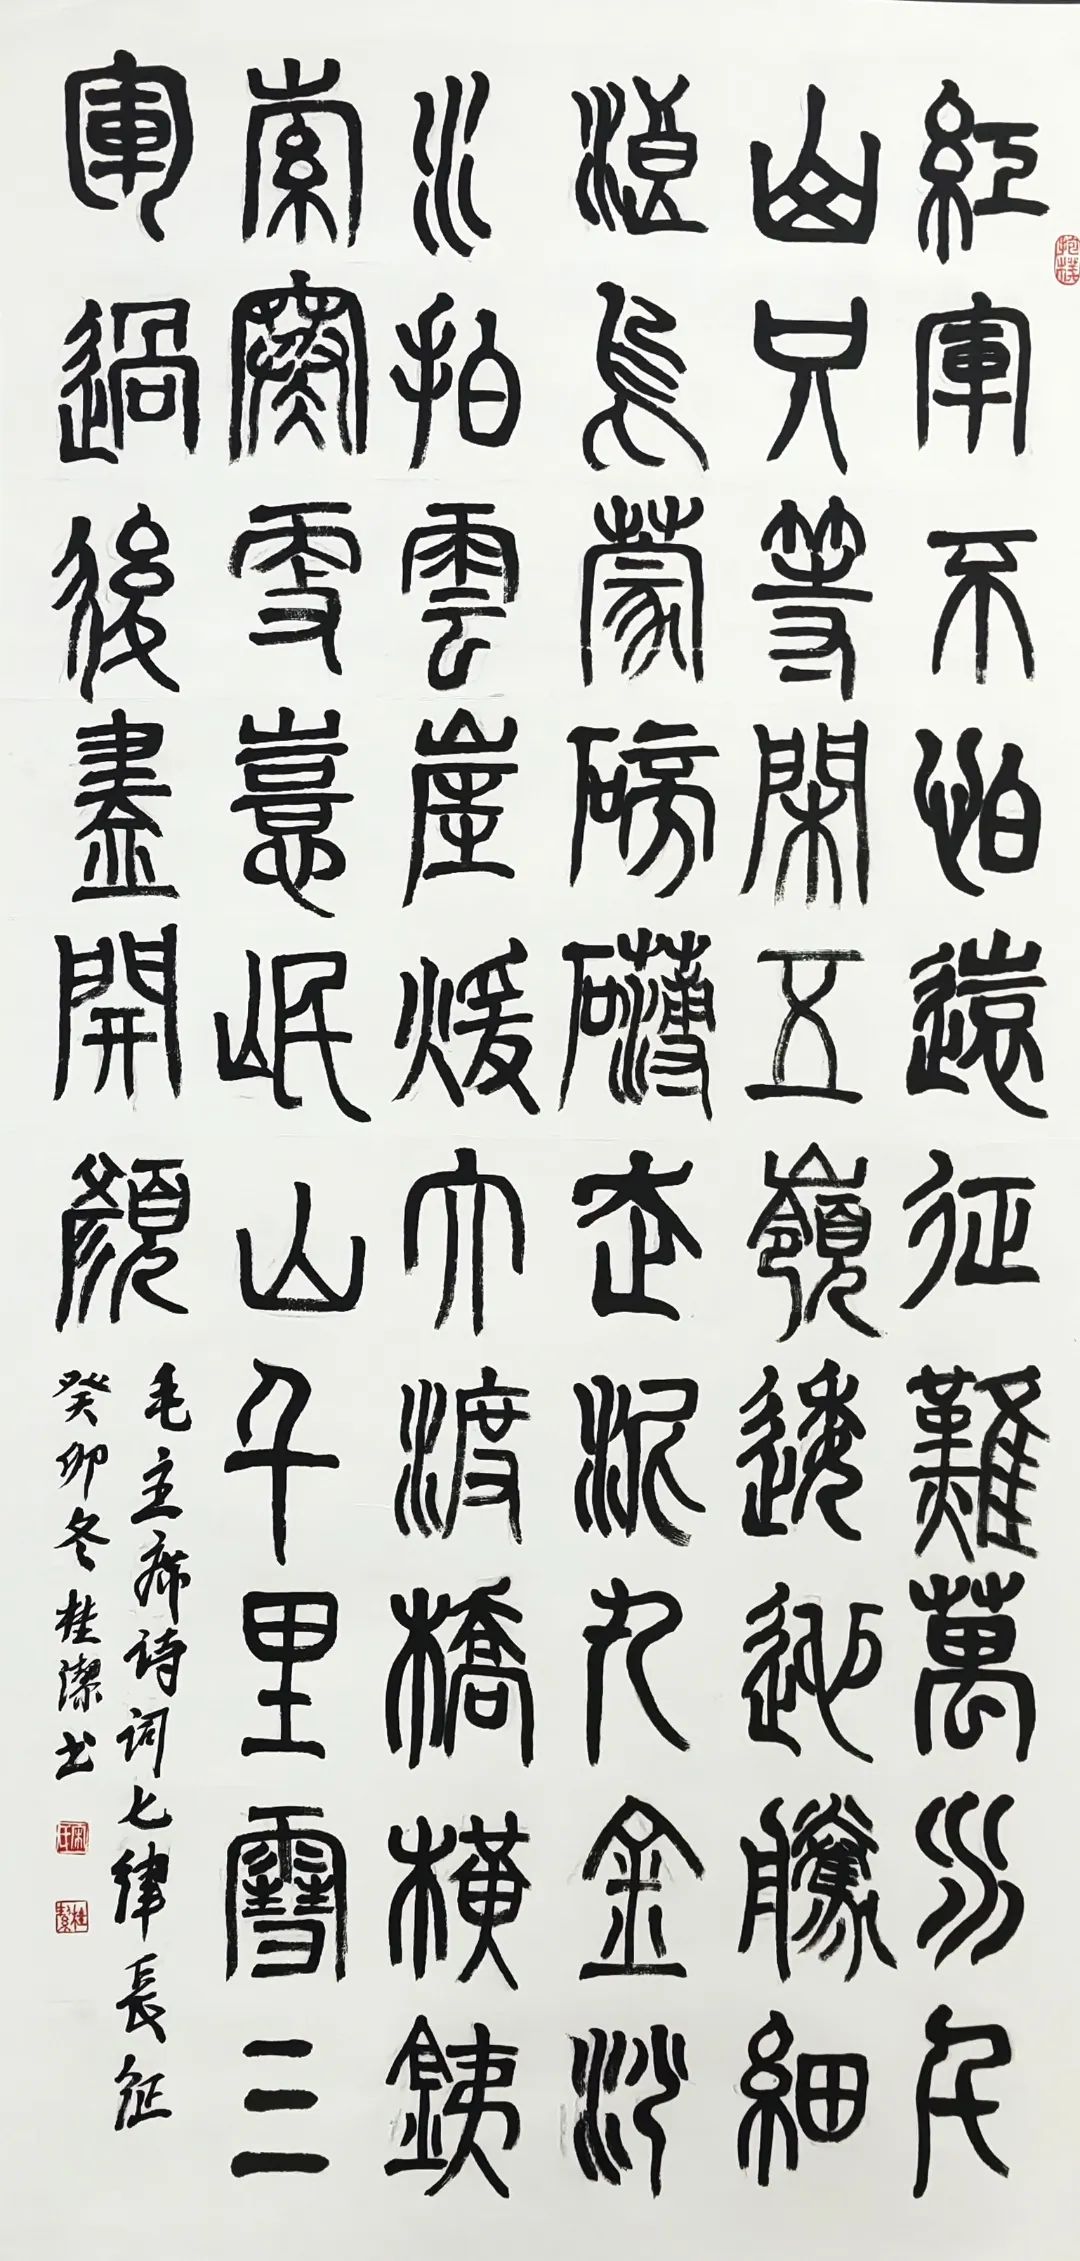 紅軍不怕遠征難萬水千
山只等閑五嶺逶迤騰細
浪烏蒙磅礴走泥丸金沙
水拍雲崖暖大渡橋橫鐵
索寒更喜岷山千里雪三
軍過後盡開顏
毛主席诗词七律長征
癸卯冬桂潔书